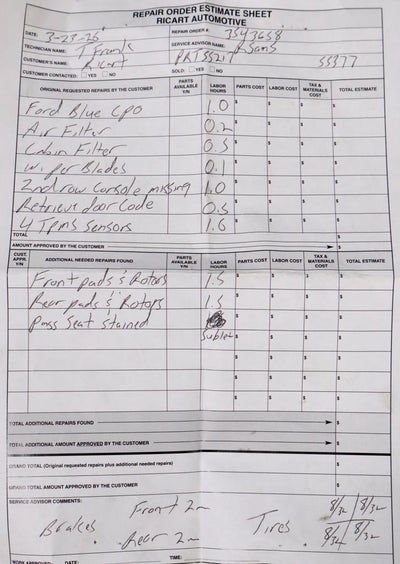 REPAIR ORDER ESTIMATE SHEET
RICART AUTOMOTIVE
DATE: 3-23-26 REPAIR ORDER # 3543658
TECHNICIAN NAME: T Frank SERVICE ADVISOR NAME:
CUSTOMER'S NAME: Ricart PRTSS217 SS377
CUSTOMER CONTACTED: YES NO SOLD: YES NO
ORIGINAL REQUESTED REPAIRS BY THE CUSTOMER PARTS AVAILABLE Y/N LABOR HOURS PARTS COST LABOR COST TAX & MATERIALS COST TOTAL ESTIMATE
Ford Blue CPO 1.0 $ $ $ $
Air Filter 0.2 $ $ $ $
Cabin Filter 0.5 $ $ $ $
Wiper Blades 0.1 $ $ $ $
2nd row Console missing 1.0 $ $ $ $
Retrieve door Code 0.5 $ $ $ $
4 TPMS Sensors 1.6 $ $ $ $
TOTAL $
AMOUNT APPROVED BY THE CUSTOMER $
CUST. APPR. Y/N ADDITIONAL NEEDED REPAIRS FOUND PARTS AVAILABLE Y/N LABOR HOURS PARTS COST LABOR COST TAX & MATERIALS COST TOTAL ESTIMATE
Front pads & Rotors 1.5 $ $ $ $
Rear pads & Rotors 1.5 $ $ $ $
Pass Seat Stained Sublet $ $ $ $
$ $ $ $
$ $ $ $
$ $ $ $
$ $ $ $
TOTAL ADDITIONAL REPAIRS FOUND $
TOTAL ADDITIONAL AMOUNT APPROVED BY THE CUSTOMER $
GRAND TOTAL (Original requested repairs plus additional needed repairs) $
GRAND TOTAL AMOUNT APPROVED BY THE CUSTOMER $
SERVICE ADVISOR COMMENTS:
Front 2m 8/32 8/32
Brakes Tires
Rear 2m 8/32 8/32
TIME:
WORK APPROVED: DATE: